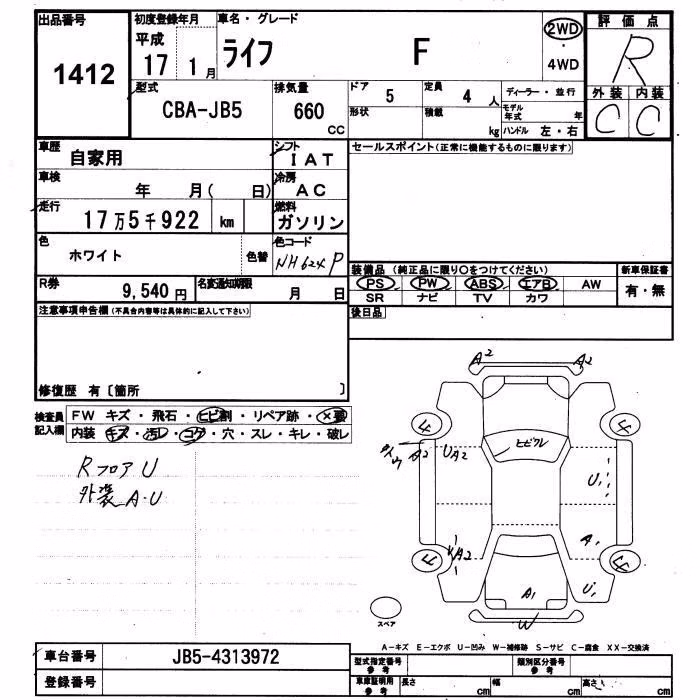 出品番号
1412
初度登録年月
平成
17 1月
車名・グレード
ライフ F
2WD
・
4WD
評価点
R
外装 内装
C C
型式
CBA-JB5
排気量
660
CC
ドア
5
定員
4 人
ディーラー・並行
形状
積載
kg
モデル年式 年
ハンドル 左・右
車歴
自家用
シフト
IAT
セールスポイント(正常に機能するものに限ります)
車検
年 月( 日)
冷房
AC
走行
17万5千922 km
燃料
ガソリン
色
ホワイト
色替
色コード
NH624P
装備品 (純正品に限り○をつけてください)
新車保証書
PS PW ABS エアB AW
有・無
SR ナビ TV カワ
R券
9,540円
名変通知期限
月 日
後日品
注意事項申告欄(不具合内容等は具体的に記入して下さい)
修復歴 有〔箇所 〕
検査員
記入欄
FW キズ・飛石・ヒビ割・リペア跡・×要
内装 キズ・汚レ・コゲ・穴・スレ・キレ・破レ
RフロアU
外装 A・U
A2 A2
4 4
A2 UA2
ヒビワレ
U1
A1
4 4
A2
A1
U1
W
スペア
A−キズ E−エクボ U−凹み W−補修跡 S−サビ C−腐食 XX−交換済
車台番号
JB5-4313972
登録番号
型式指定番号
参考
類別区分番号
参考
車庫証明用
参考
長さ cm 幅 cm 高さ cm